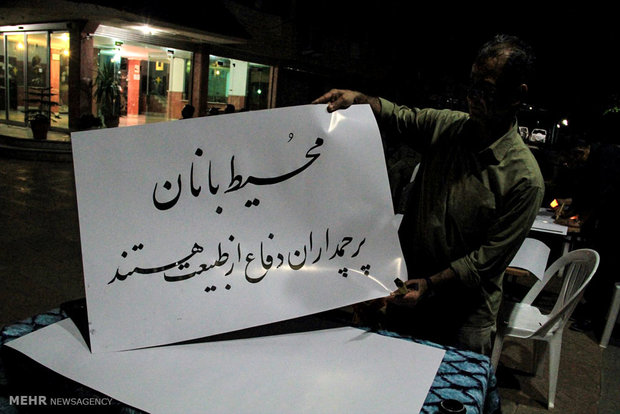 محُیط بانان
پرچمداران دفاع از طبیعت هستند
MEHR NEWSAGENCY